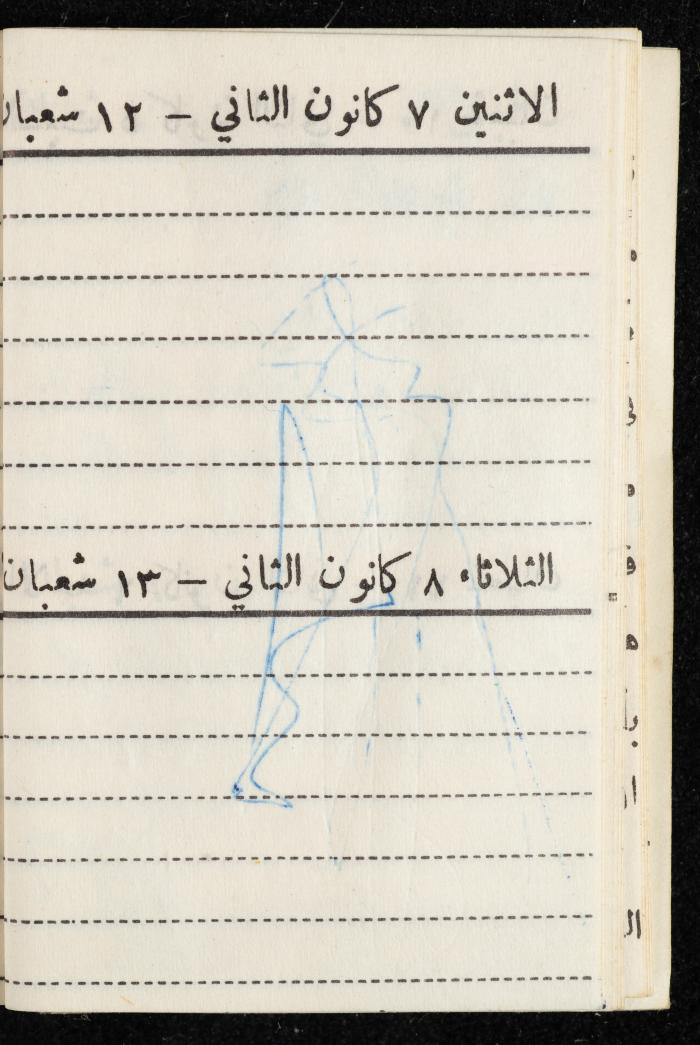 الاثنين ٧ كانون الثاني - ١٢ شعبان
الثلاثاء ٨ كانون الثاني - ١٣ شعبان